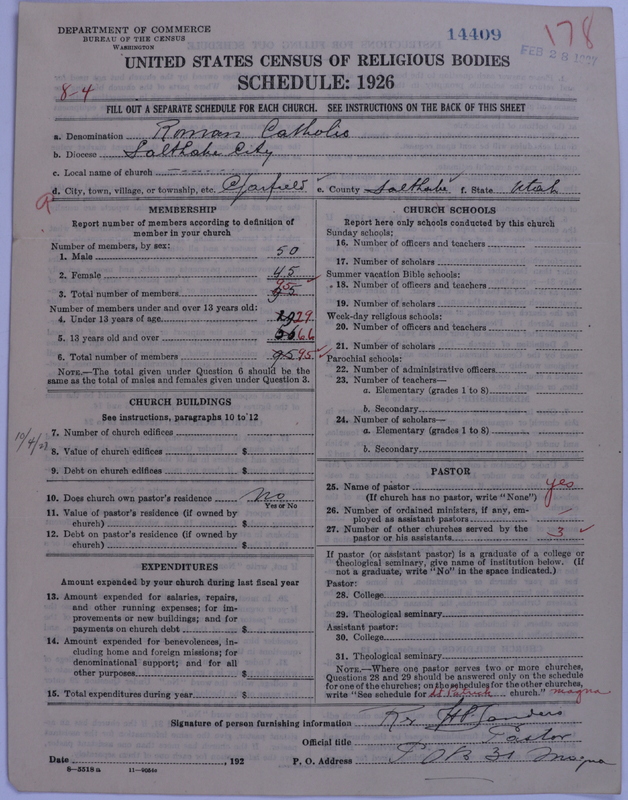 DEPARTMENT OF COMMERCE
BUREAU OF THE CENSUS
WASHINGTON
14409
178
FEB 28 1927
UNITED STATES CENSUS OF RELIGIOUS BODIES
SCHEDULE: 1926
8-4
FILL OUT A SEPARATE SCHEDULE FOR EACH CHURCH. SEE INSTRUCTIONS ON THE BACK OF THIS SHEET
a. Denomination Roman Catholic
b. Diocese Salt Lake City
c. Local name of church
d. City, town, village, or township, etc. Garfield e. County Salt Lake f. State Utah
R
MEMBERSHIP
Report number of members according to definition of
member in your church
Number of members, by sex:
1. Male 50
2. Female 45
3. Total number of members 95 95
Number of members under and over 13 years old:
4. Under 13 years of age 29
5. 13 years old and over 66
6. Total number of members 95 95
NOTE.—The total given under Question 6 should be the
same as the total of males and females given under Question 3.
CHURCH BUILDINGS
See instructions, paragraphs 10 to 12
7. Number of church edifices
10/4/27
8. Value of church edifices $
9. Debt on church edifices $
10. Does church own pastor's residence No
Yes or No
11. Value of pastor's residence (if owned by
church) $
12. Debt on pastor's residence (if owned by
church) $
EXPENDITURES
Amount expended by your church during last fiscal year
13. Amount expended for salaries, repairs,
and other running expenses; for im-
provements or new buildings; and for
payments on church debt $
14. Amount expended for benevolences, in-
cluding home and foreign missions; for
denominational support; and for all
other purposes $
15. Total expenditures during year $
CHURCH SCHOOLS
Report here only schools conducted by this church
Sunday schools:
16. Number of officers and teachers
17. Number of scholars
Summer vacation Bible schools:
18. Number of officers and teachers
19. Number of scholars
Week-day religious schools:
20. Number of officers and teachers
21. Number of scholars
Parochial schools:
22. Number of administrative officers
23. Number of teachers—
a. Elementary (grades 1 to 8)
b. Secondary
24. Number of scholars—
a. Elementary (grades 1 to 8)
b. Secondary
PASTOR
25. Name of pastor yes
(If church has no pastor, write "None")
26. Number of ordained ministers, if any, em-
ployed as assistant pastors
27. Number of other churches served by the
pastor or his assistants 3
If pastor (or assistant pastor) is a graduate of a college or
theological seminary, give name of institution below. (If
not a graduate, write "No" in the space indicated.)
Pastor:
28. College
29. Theological seminary
Assistant pastor:
30. College
31. Theological seminary
NOTE.—Where one pastor serves two or more churches,
Questions 28 and 29 should be answered only on the schedule
for one of the churches; on the schedules for the other churches,
write "See schedule for St Patrick church." magna
Signature of person furnishing information
Official title Pastor
Date , 192 P. O. Address P O B 31 Magna
8-5518 a 11-9054c